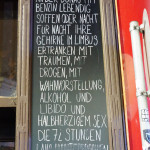 BENZIN LEBENDIG
SOFFEN ODER NACHT
FÜR NACHT IHRE
GEHIRNE IM LIMBUS
ERTRÄNKEN MIT
TRÄUMEN, MIT
DROGEN, MIT
WAHNVORSTELLUNG,
ALKOHOL UND
LIBIDO UND
HALBHERZIGEM SEX
DIE 72 STUNDEN
LANG